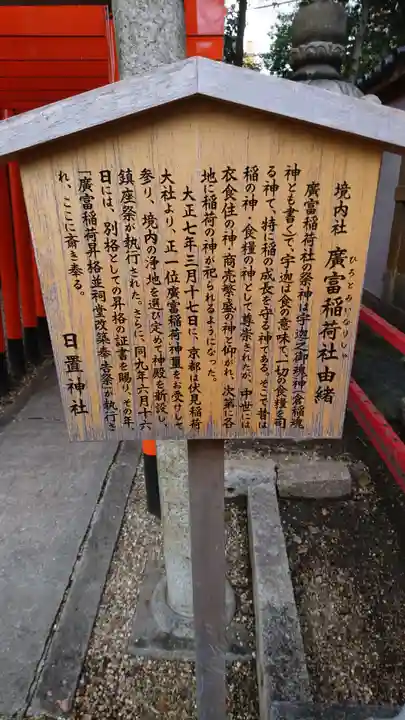 境内社 廣富稲荷社由緒
ひろとみいなりしゃ
廣富稲荷社の祭神は宇迦之御魂神(倉稲魂
神とも書く)で、宇迦は食の意味で一切の食糧を司
る神で、特に稲の成長を守る神である。そこで昔は
稲の神・食糧の神として尊崇されたが、中世には
衣食住の神・商売繁盛の神と仰がれ、次第に各
地に稲荷の神が祀られるようになった。
大正七年三月十七日に、京都は伏見稲荷
大社より、正一位廣富稲荷神璽をお受けして
参り、境内の浄地を選び定めて神殿を新設し、
鎮座祭が執行された。さらに、同九年六月十六
日には、別格としての昇格の証書を賜り、その年
「廣富稲荷昇格並祠堂改築奉告祭」が執行さ
れ、ここに斎き奉る。
日置神社